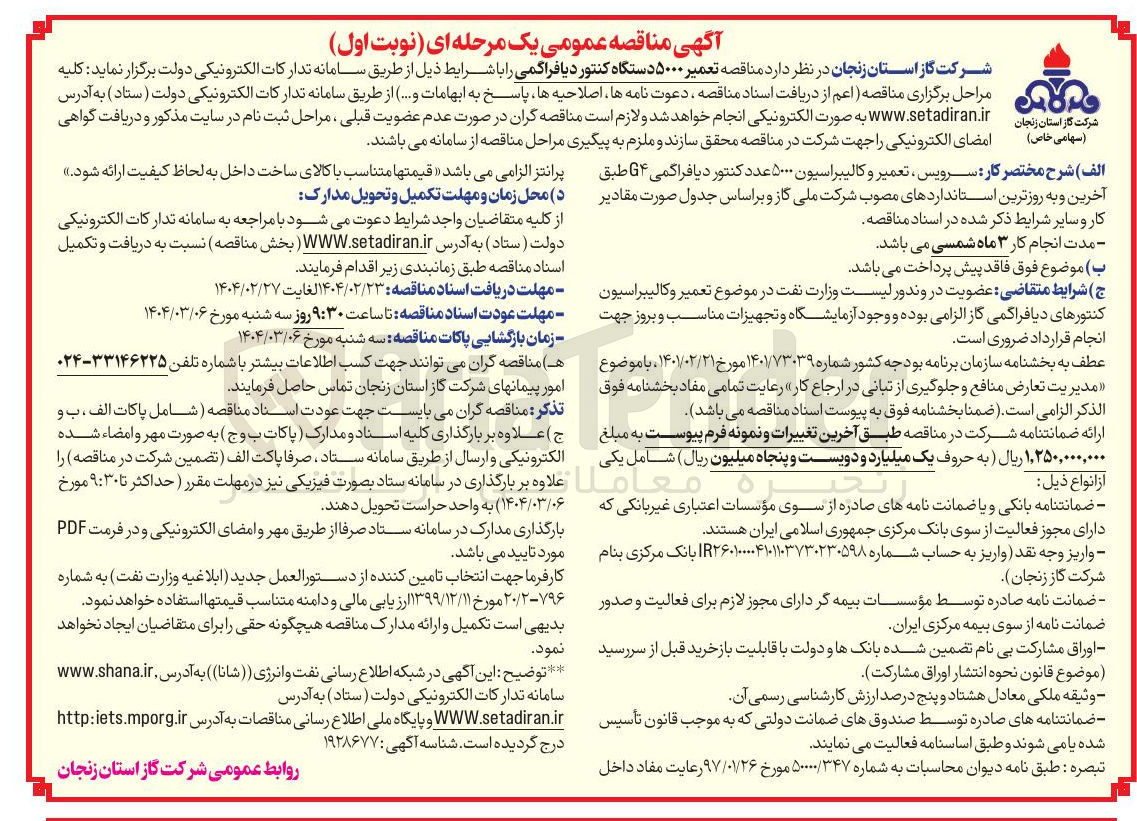 آگهی مناقصه عمومی یک مرحله ای (نوبت اول)
شرکت گاز استان زنجان
(سهامی خاص)
شرکت گاز استان زنجان در نظر دارد مناقصه تعمیر ۵۰۰۰ دستگاه کنتور دیافراگمی را با شرایط ذیل از طریق سامانه تدارکات الکترونیکی دولت برگزار نماید: کلیه
مراحل برگزاری مناقصه (اعم از دریافت اسناد مناقصه ، دعوت نامه ها ، اصلاحیه ها ، پاسخ به ابهامات و...) از طریق سامانه تدارکات الکترونیکی دولت (ستاد) به آدرس
www.setadiran.ir به صورت الکترونیکی انجام خواهد شد و لازم است مناقصه گران در صورت عدم عضویت قبلی ، مراحل ثبت نام در سایت مذکور و دریافت گواهی
امضای الکترونیکی را جهت شرکت در مناقصه محقق سازند و ملزم به پیگیری مراحل مناقصه از سامانه می باشند.
الف) شرح مختصر کار: سرویس ، تعمیر و کالیبراسیون ۵۰۰۰ عدد کنتور دیافراگمی G۴ طبق
آخرین و به روزترین استانداردهای مصوب شرکت ملی گاز و بر اساس جدول صورت مقادیر
کار و سایر شرایط ذکر شده در اسناد مناقصه.
- مدت انجام کار ۳ ماه شمسی می باشد.
ب) موضوع فوق فاقد پیش پرداخت می باشد.
ج) شرایط متقاضی: عضویت در وندور لیست وزارت نفت در موضوع تعمیر و کالیبراسیون
کنتورهای دیافراگمی گاز الزامی بوده و وجود آزمایشگاه و تجهیزات مناسب و بروز جهت
انجام قرارداد ضروری است.
عطف به بخشنامه سازمان برنامه بودجه کشور شماره ۱۴۰۱/۷۳۰۳۹ مورخ ۱۴۰۱/۰۲/۲۱ ، با موضوع
«مدیریت تعارض منافع و جلوگیری از تبانی در ارجاع کار» رعایت تمامی مفاد بخشنامه فوق
الذکر الزامی است. (ضمنا بخشنامه فوق به پیوست اسناد مناقصه می باشد).
ارائه ضمانتنامه شرکت در مناقصه طبق آخرین تغییرات و نمونه فرم پیوست به مبلغ
۱,۲۵۰,۰۰۰,۰۰۰ ریال (به حروف یک میلیارد و دویست و پنجاه میلیون ریال) شامل یکی
از انواع ذیل:
- ضمانتنامه بانکی و یا ضمانت نامه های صادره از سوی مؤسسات اعتباری غیربانکی که
دارای مجوز فعالیت از سوی بانک مرکزی جمهوری اسلامی ایران هستند.
- واریز وجه نقد (واریز به حساب شماره IR۲۶۰۱۰۰۰۰۴۱۰۱۱۰۳۷۳۰۲۳۰۵۹۸ بانک مرکزی بنام
شرکت گاز زنجان).
- ضمانت نامه صادره توسط مؤسسات بیمه گر دارای مجوز لازم برای فعالیت و صدور
ضمانت نامه از سوی بیمه مرکزی ایران.
- اوراق مشارکت بی نام تضمین شده بانک ها و دولت با قابلیت بازخرید قبل از سررسید
(موضوع قانون نحوه انتشار اوراق مشارکت).
- وثیقه ملکی معادل هشتاد و پنج درصد ارزش کارشناسی رسمی آن.
- ضمانتنامه های صادره توسط صندوق های ضمانت دولتی که به موجب قانون تأسیس
شده یا می شوند و طبق اساسنامه فعالیت می نمایند.
تبصره : طبق نامه دیوان محاسبات به شماره ۵۰۰۰۰/۳۴۷ مورخ ۹۷/۰۱/۲۶ رعایت مفاد داخل
پرانتز الزامی می باشد «قیمتها متناسب با کالای ساخت داخل به لحاظ کیفیت ارائه شود.»
د) محل زمان و مهلت تکمیل و تحویل مدارک:
از کلیه متقاضیان واجد شرایط دعوت می شود با مراجعه به سامانه تدارکات الکترونیکی
دولت (ستاد) به آدرس WWW.setadiran.ir (بخش مناقصه) نسبت به دریافت و تکمیل
اسناد مناقصه طبق زمانبندی زیر اقدام فرمایند.
- مهلت دریافت اسناد مناقصه: ۱۴۰۴/۰۲/۲۳ لغایت ۱۴۰۴/۰۲/۲۷
- مهلت عودت اسناد مناقصه: تا ساعت ۹:۳۰ روز سه شنبه مورخ ۱۴۰۴/۰۳/۰۶
- زمان بازگشایی پاکات مناقصه: سه شنبه مورخ ۱۴۰۴/۰۳/۰۶
هـ) مناقصه گران می توانند جهت کسب اطلاعات بیشتر با شماره تلفن ۳۳۱۴۶۲۲۵-۰۲۴
امور پیمانهای شرکت گاز استان زنجان تماس حاصل فرمایند.
تذکر: مناقصه گران می بایست جهت عودت اسناد مناقصه (شامل پاکات الف ، ب و
ج) علاوه بر بارگذاری کلیه اسناد و مدارک (پاکات ب و ج) به صورت مهر و امضاء شده
الکترونیکی و ارسال از طریق سامانه ستاد ، صرفا پاکت الف (تضمین شرکت در مناقصه) را
علاوه بر بارگذاری در سامانه ستاد بصورت فیزیکی نیز در مهلت مقرر (حداکثر تا ۹:۳۰ مورخ
۱۴۰۴/۰۳/۰۶) به واحد حراست تحویل دهند.
بارگذاری مدارک در سامانه ستاد صرفا از طریق مهر و امضای الکترونیکی و در فرمت PDF
مورد تایید می باشد.
کارفرما جهت انتخاب تامین کننده از دستورالعمل جدید (ابلاغیه وزارت نفت) به شماره
۲۰/۲-۷۹۶ مورخ ۱۳۹۹/۱۲/۱۱ ارزیابی مالی و دامنه متناسب قیمتها استفاده خواهد نمود.
بدیهی است تکمیل و ارائه مدارک مناقصه هیچگونه حقی را برای متقاضیان ایجاد نخواهد
نمود.
**توضیح: این آگهی در شبکه اطلاع رسانی نفت و انرژی ((شانا)) به آدرس www.shana.ir,
سامانه تدارکات الکترونیکی دولت (ستاد) به آدرس
WWW.setadiran.ir و پایگاه ملی اطلاع رسانی مناقصات به آدرس http:iets.mporg.ir
درج گردیده است. شناسه آگهی: ۱۹۲۸۶۷۷
روابط عمومی شرکت گاز استان زنجان
AriaTender
زنجیره معاملاتی آریاتندر